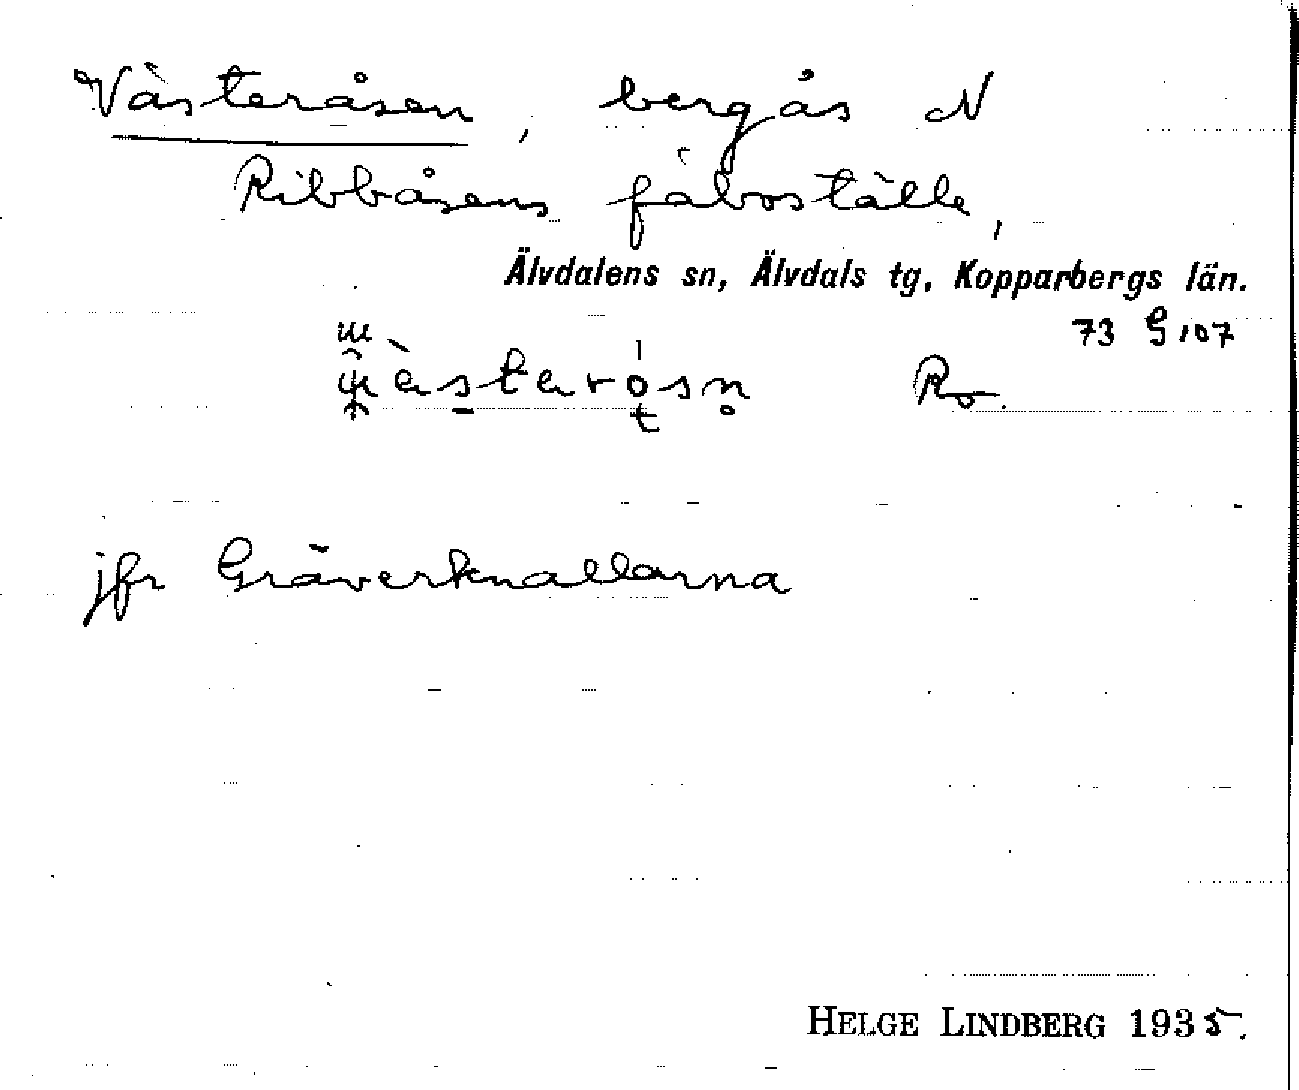 Västeråsen, bergås N
Ribbåsens fäboställe,
Älvdalens sn, Älvdals tg, Kopparbergs län.
73 G 107
Ro.
jfr Gräverknallarna
HELGE LINDBERG 1935.